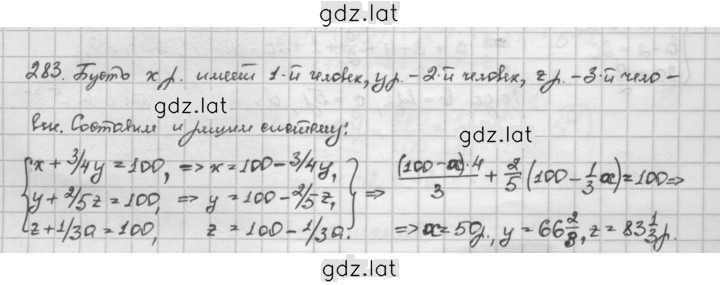 gdz.lat
283. Пусть x р. имеет 1-й человек, y р. - 2-й человек, z р. - 3-й чело-
gdz.lat
век. Составим и решим систему:
gdz.lat
{x + 3/4y = 100, => x = 100 - 3/4y,
{y + 2/5z = 100, => y = 100 - 2/5z,
{z + 1/3a = 100, z = 100 - 1/3a.
} => (100 - a)·4/3 + 2/5(100 - 1/3a) = 100 =>
=> x = 50р., y = 66 2/3, z = 83 1/3 р.
gdz.lat
gdz.lat